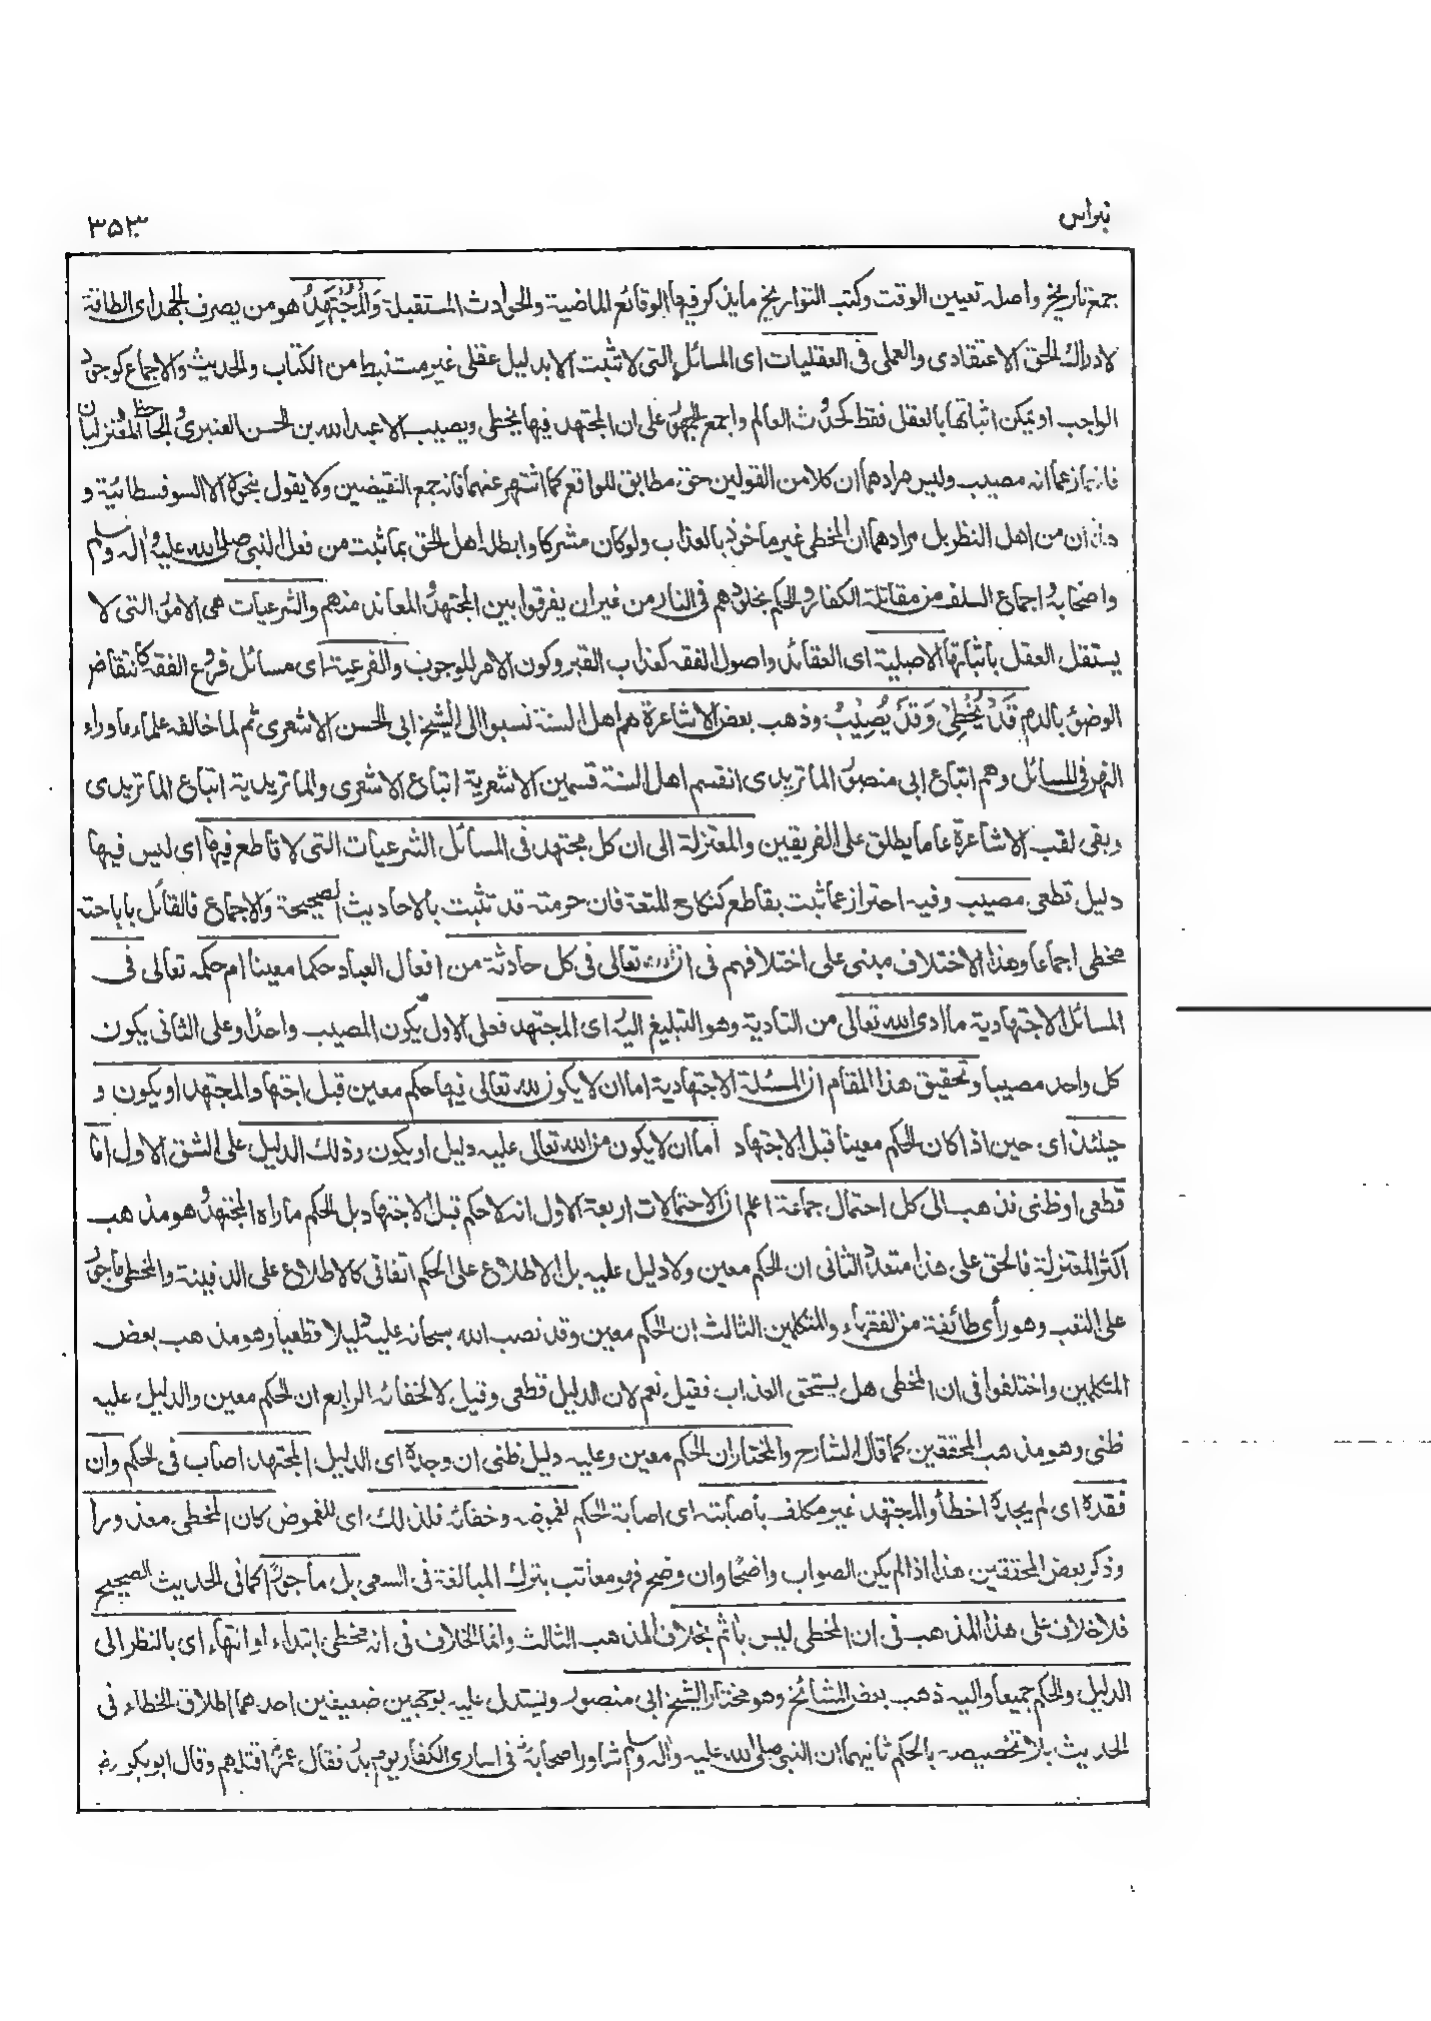 نبراس
٣٥٣
جمع تاريخ واصله تعيين الوقت وكتب التواريخ ما يذكر فيها الوقائع الماضية والحوادث المستقبلة وَالْمُجْتَهِدُ هو من يصرف الجهد اى الطاقة
لادراك الحق الاعتقادى والعملى فى العقليات اى المسائل التى لا تثبت الا بدليل عقلى غير مستنبط من الكتاب والحديث والاجماع كوجود
الواجب او يمكن اثباتها بالعقل فقط كحدوث العالم واجمع الجمهور على ان المجتهد فيها يخطى ويصيب الا عبد الله بن الحسن العنبرى والجاحظ المعتزليان
فانهما زعما انه مصيب وليس مرادهما ان كلا من القولين حق مطابق للواقع كما اشتهر عنهما فانه جمع النقيضين ولا يقول بنحوه الا السوفسطائية و
ان من اهل النظر بل مرادهما ان المخطى غير ماخوذ بالعذاب ولو كان مشركا وابطله اهل الحق بما ثبت من فعل النبى صلى الله عليه واله وسلم
واصحابه اجماع السلف من مقاتلة الكفار والحكم بخلودهم فى النار من غير ان يفرقوا بين المجتهد والمعاند منهم والشرعيات هى الامور التى لا
يستقل العقل باثباتها الاصلية اى العقائد واصول الفقه كعذاب القبر وكون الامر للوجوب والفرعية اى مسائل فروع الفقه كانتقاض
الوضوء بالدم قَدْ يُخْطِئُ وَقَدْ يُصِيْبُ وذهب بعض الاشاعرة هم اهل السنة نسبوا الى الشيخ ابى الحسن الاشعرى ثم لما خالفه علماء ماوراء
النهر فى المسائل وهم اتباع ابى منصور الماتريدى انقسم اهل السنة قسمين الاشعرية اتباع الاشعرى والماتريدية اتباع الماتريدى
وبقى لقب الاشاعرة عاما يطلق على الفريقين والمعتزلة الى ان كل مجتهد فى المسائل الشرعيات التى لا قاطع فيها اى ليس فيها
دليل قطعى مصيب وفيه احتراز عما ثبت بقاطع كنكاح المتعة فان حرمته قد تثبت بالاحاديث الصحيحة والاجماع فالقائل باباحته
مخطى اجماعا وهذا الاختلاف مبنى على اختلافهم فى ان لله تعالى فى كل حادثة من افعال العباد حكما معينا ام حكمه تعالى فى
المسائل الاجتهادية ما ادى الله تعالى من التادية وهو التبليغ اليه اى المجتهد فعلى الاول يكون المصيب واحدا وعلى الثانى يكون
كل واحد مصيبا وتحقيق هذا المقام ان المسئلة الاجتهادية اما ان لا يكون لله تعالى فيها حكم معين قبل اجتهاد المجتهد او يكون و
حينئذ اى حين اذ كان الحكم معينا قبل الاجتهاد اما ان لا يكون من الله تعالى عليه دليل او يكون وذلك الدليل على الشق الاول اما
قطعى او ظنى فذهب الى كل احتمال جماعة اعلم ان الاحتمالات اربعة الاول انه لا حكم قبل الاجتهاد بل الحكم ما راه المجتهد وهو مذهب
اكثر المعتزلة فالحق على هذا متعدد الثانى ان الحكم معين ولا دليل عليه بل الاطلاع على الحكم اتفاقى كالاطلاع على الدفينة والمخطى ماجور
على التعب وهو رأى طائفة من الفقهاء والمتكلمين الثالث ان الحكم معين وقد نصب الله سبحانه عليه دليلا قطعيا وهو مذهب بعض
المتكلمين واختلفوا فى ان المخطى هل يستحق العذاب فقيل نعم لان الدليل قطعى وقيل لا لخفائه الرابع ان الحكم معين والدليل عليه
ظنى وهو مذهب المحققين كما قال الشارح والمختار ان الحكم معين وعليه دليل ظنى ان وجده اى الدليل المجتهد اصاب فى الحكم وان
فقده اى لم يجده اخطأ والمجتهد غير مكلف باصابته اى اصابة الحكم لغموضه وخفائه فلذلك اى للغموض كان المخطى معذورا
وذكر بعض المحققين هذا اذا لم يكن الصواب واضحا وان وضح فهو معاتب بترك المبالغة فى السعى بل ماجورا كما فى الحديث الصحيح
فلا خلاف على هذا المذهب فى ان المخطى ليس باثم بخلاف المذهب الثالث وانما الخلاف فى انه مخطى ابتداء او انتهاء اى بالنظر الى
الدليل والحكم جميعا واليه ذهب بعض المشائخ وهو مختار الشيخ ابى منصور ويستدل عليه بوجهين ضعيفين احدهما اطلاق الخطاء فى
الحديث بلا تخصيصه بالحكم ثانيهما ان النبى صلى الله عليه واله وسلم شاور اصحابه فى اسارى الكفار يوم بدر فقال عمر اقتلهم وقال ابوبكر رض